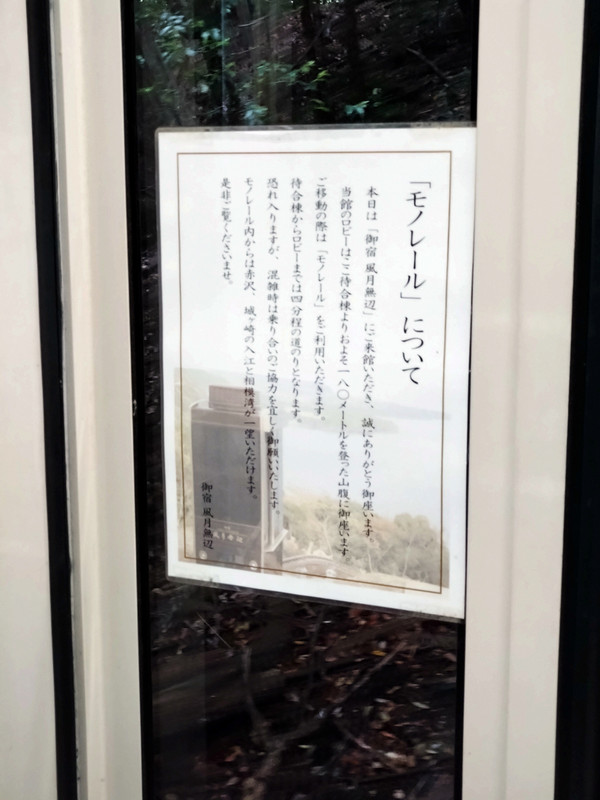 「モノレール」について
本日は「御宿 風月無辺」にご来館いただき、誠にありがとう御座います
当館のロビーはここ待合棟よりおよそ一八〇メートルを登った山腹に御座います
ご移動の際は「モノレール」をご利用いただきます。
待合棟からロビーまでは四分程の道のりとなります。
恐れ入りますが、混雑時は乗り合いのご協力を宜しく御願いいたします。
モノレール内からは赤沢、城ヶ崎の入江と相模湾が一望いただけます。
是非ご覧くださいませ。
御宿 風月無辺